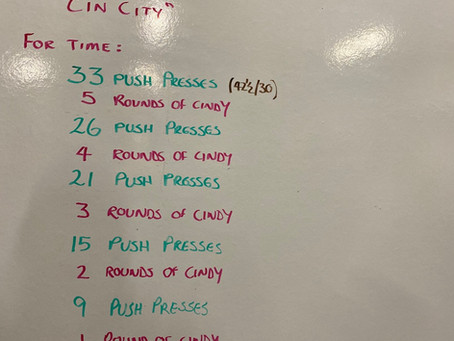 CIN CITY"
FOR TIME:
33 PUSH PRESSES (42½/30)
5 ROUNDS OF CINDY
26 PUSH PRESSES
4 ROUNDS OF CINDY
21 PUSH PRESSES
3 ROUNDS OF CINDY
15 PUSH PRESSES
2 ROUNDS OF CINDY
9 PUSH PRESSES
1 ROUND OF CINDY